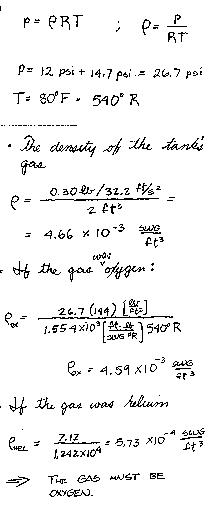 P = ρRT ; ρ = P / RT
P = 12 psi + 14.7 psi = 26.7 psi
T = 80°F = 540° R
• The density of the tank's gas
ρ = 0.30 lb / 32.2 ft/s² / 2 ft³ =
= 4.66 × 10⁻³ slug / ft³
- If the gas was oxygen :
ρox = 26.7 (144) [lb / ft²] / 1.554 × 10³ [ft. lb / slug °R] 540° R
ρox = 4.59 × 10⁻³ slug / ft³
- If the gas was helium
ρHEL = 7.12 / 1.242×10⁴ = 5.73 × 10⁻⁴ slug / ft³
⇒ THE GAS MUST BE
OXYGEN.